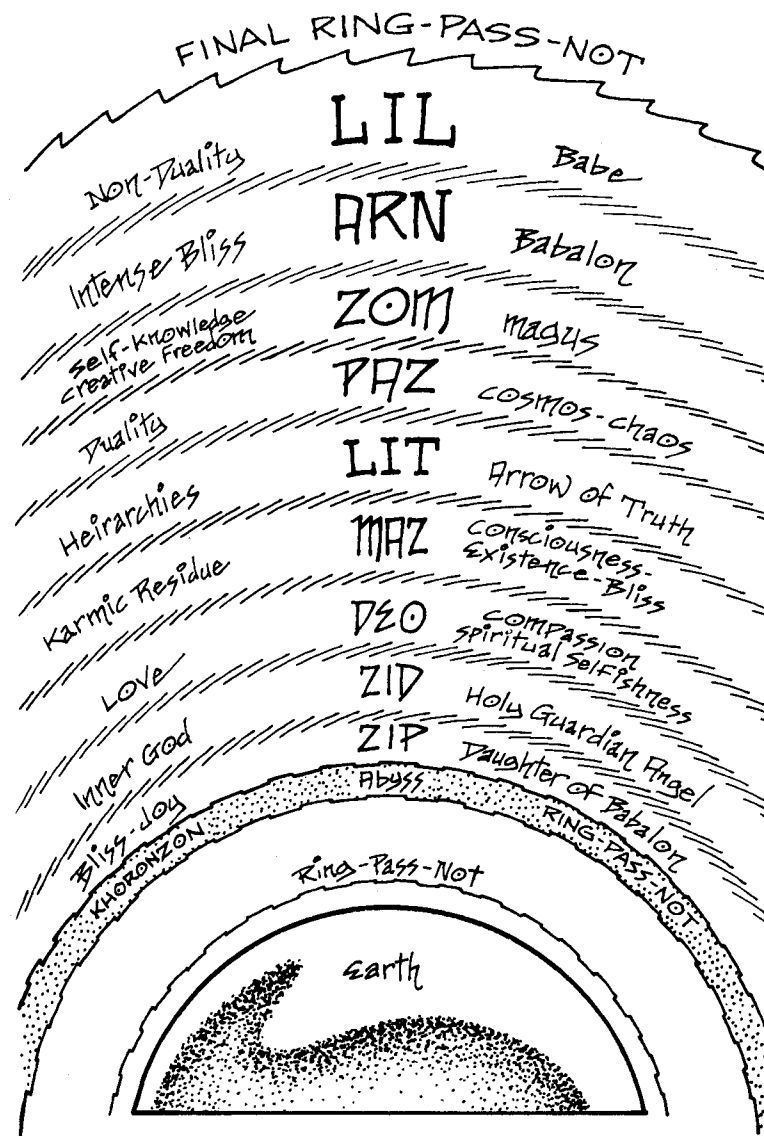 FINAL RING-PASS-NOT
LIL
Non-Duality
Babe
ARN
Intense Bliss
Babalon
ZOM
Self-Knowledge
Creative Freedom
Magus
PAZ
Duality
Cosmos-Chaos
LIT
Heirarchies
Arrow of Truth
MAZ
Karmic Residue
Consciousness-
Existence-Bliss
DEO
Love
Compassion
Spiritual Selfishness
ZID
Inner God
Holy Guardian Angel
ZIP
Bliss-Joy
Daughter of Babalon
KHORONZON
Abyss
RING-PASS-NOT
Ring-Pass-Not
Earth